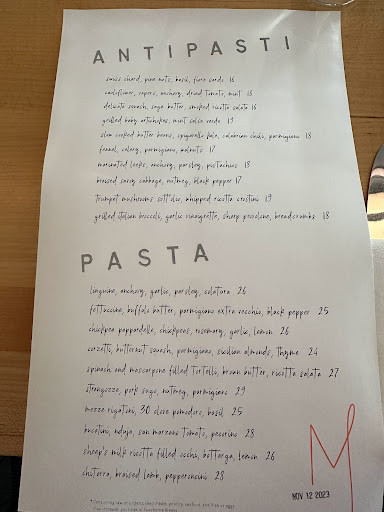 ANTIPASTI
swiss chard, pine nuts, basil, fiore sardo 16
cauliflower, capers, anchovy, dried tomato, mint 18
delicata squash, sage butter, smoked ricotta salata 16
grilled baby artichokes, mint salsa verde 19
slow cooked butter beans, spigarello kale, calabrian chili, parmigiano 18
fennel, celery, parmigiano, walnuts 17
marinated leeks, anchovy, parsley, pistachios 18
braised savoy cabbage, nutmeg, black pepper 17
trumpet mushrooms sott'olio, whipped ricotta crostini 19
grilled italian broccoli, garlic vinaigrette, sharp provolone, breadcrumbs 18
PASTA
linguine, anchovy, garlic, parsley, colatura 26
fettuccine, buffalo butter, parmigiano extra vecchio, black pepper 25
chickpea pappardelle, chickpeas, rosemary, garlic, lemon 26
corzetti, butternut squash, parmigiano, sicilian almonds, thyme 24
spinach and mascarpone filled tortelli, brown butter, ricotta salata 27
strangozzo, pork sugo, nutmeg, parmigiano 29
mezze rigatoni, 30 clove pomodoro, basil 25
bucatini, nduja, san marzano tomato, pecorino 28
sheep's milk ricotta filled occhi, bottarga, lemon 26
chitarra, braised lamb, pepperoncini 28
M
NOV 12 2023